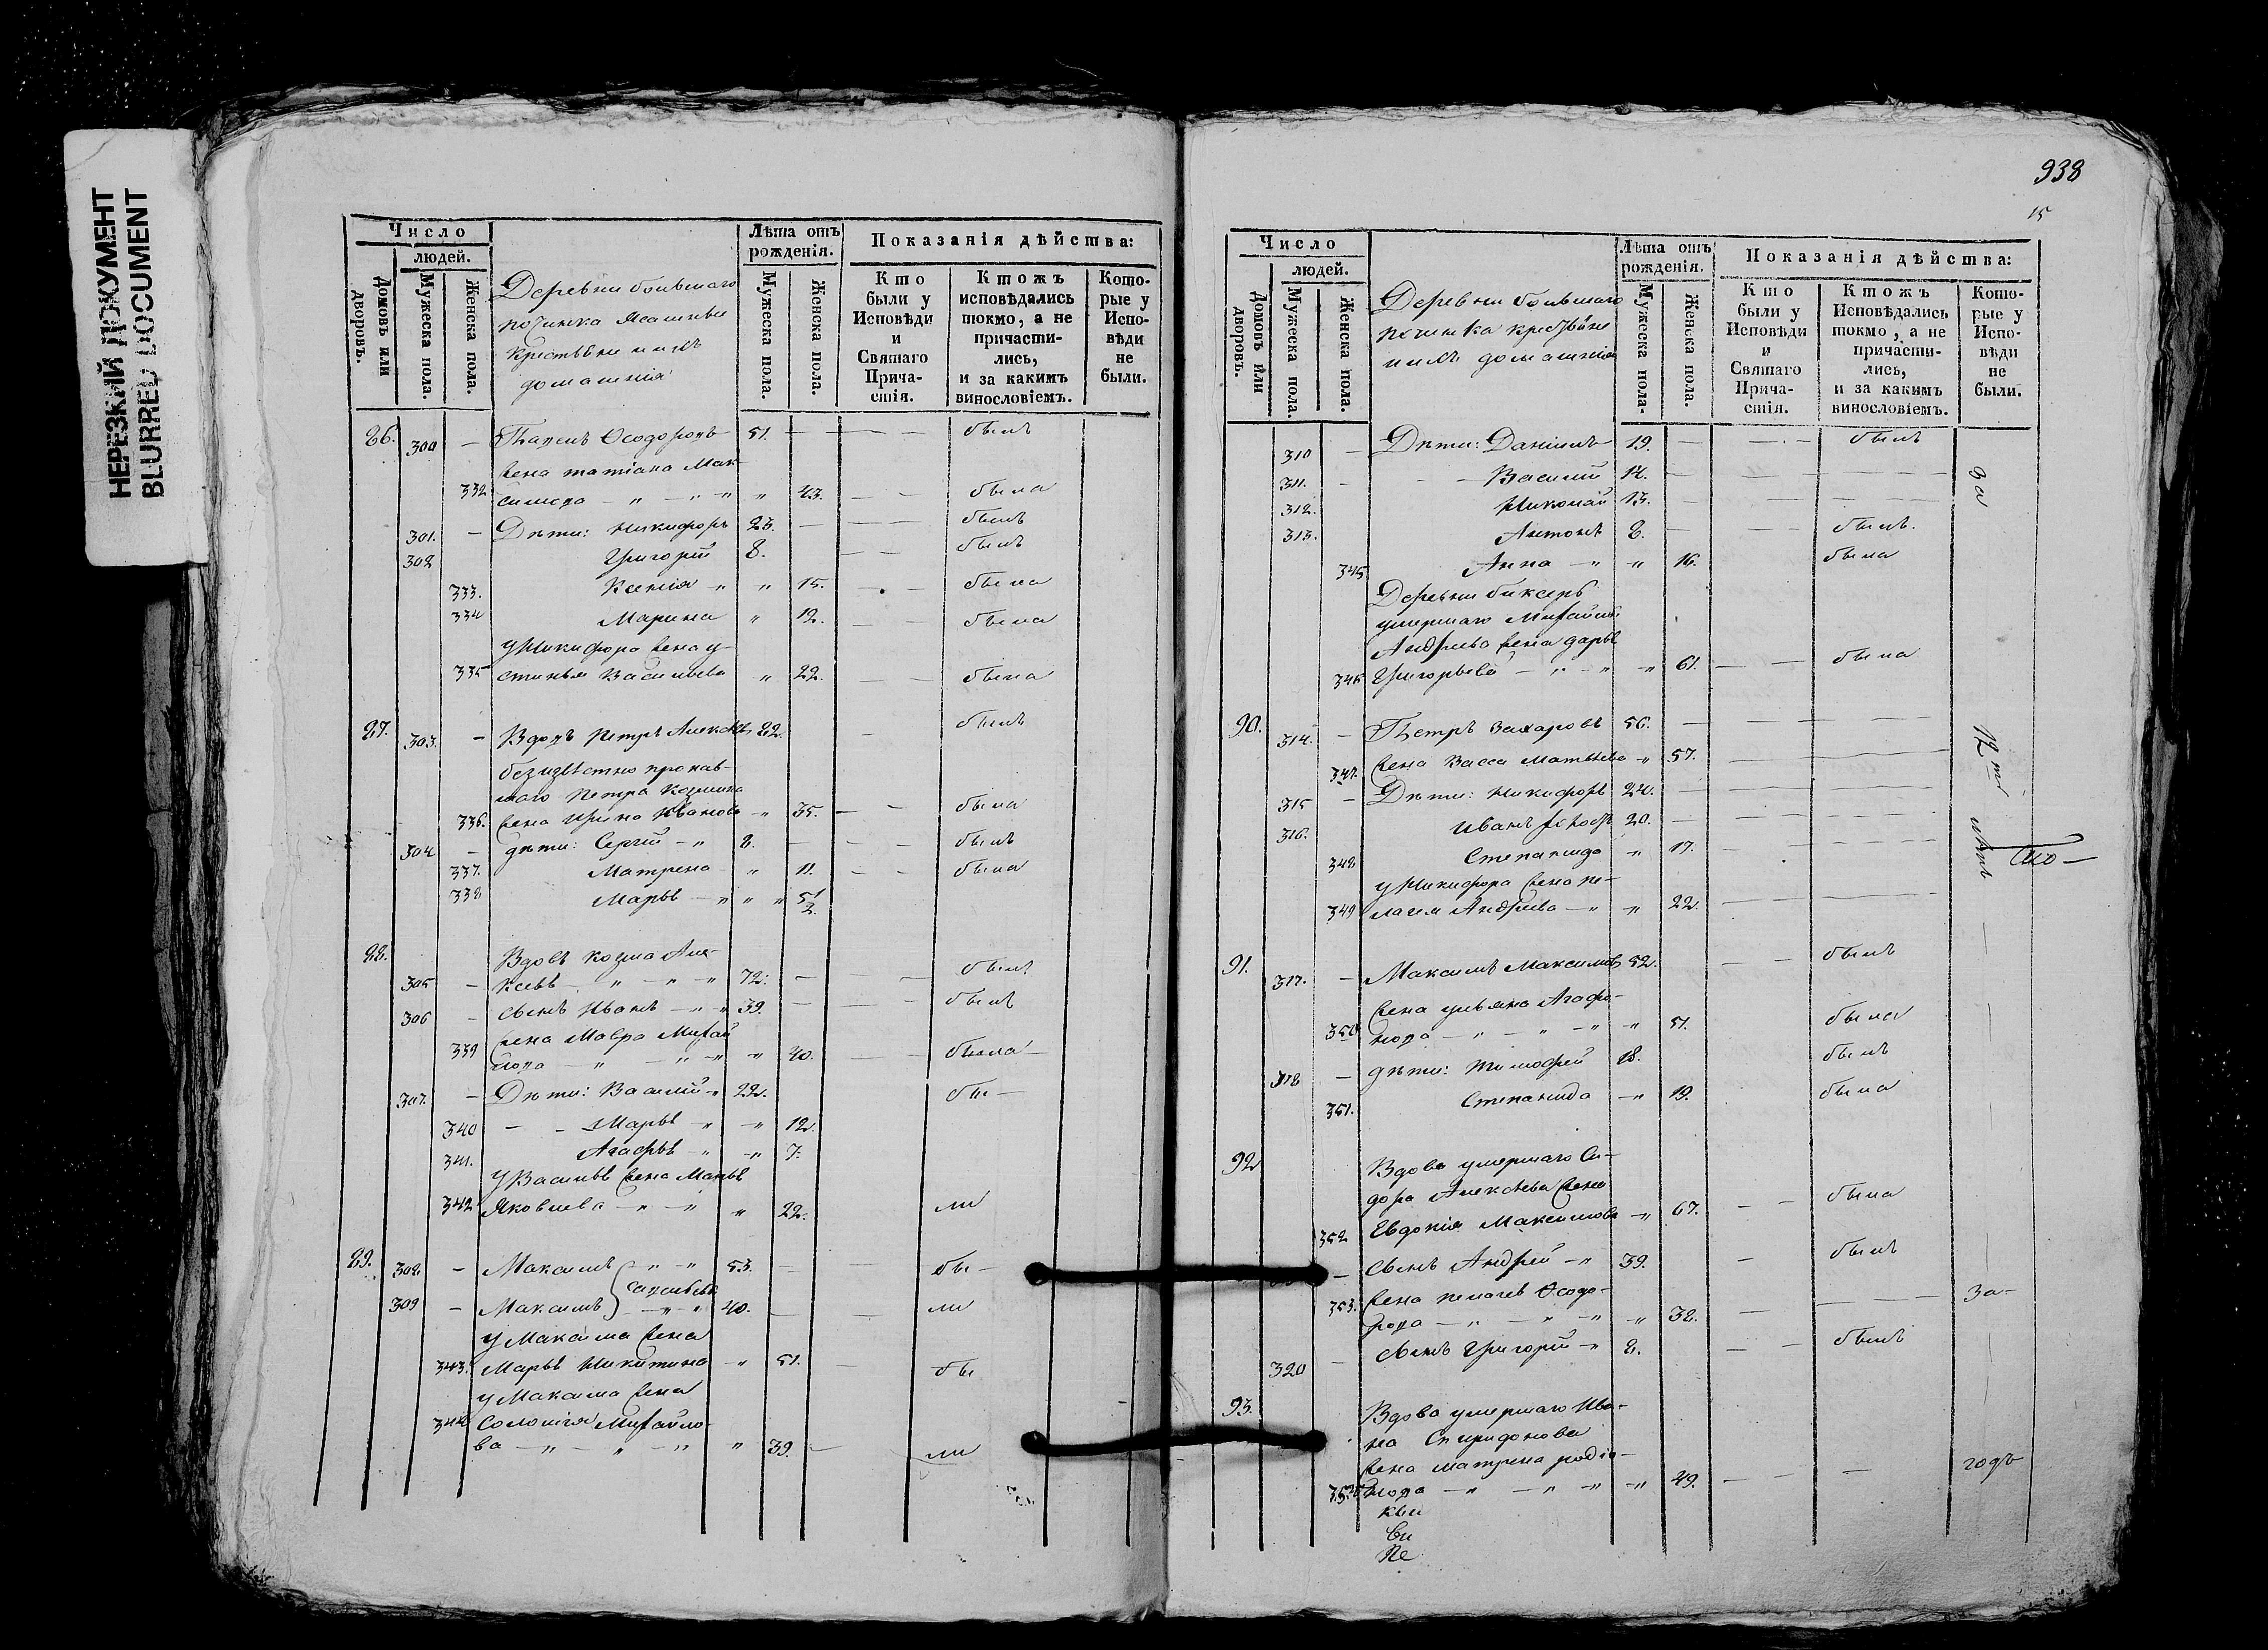 НЕРЕЗКИЙ ДОКУМЕНТ
BLURRED DOCUMENT
Число
людей.
Домовъ или дворовъ.
Мужеска пола.
Женска пола.
Деревни большаго
починка Ясашные
крестьяне и ихъ
домашнія
Лѣта отъ рожденія.
Мужеска пола.
Женска пола.
Показанія дѣйства:
Кто были у Исповѣди и Святаго Прича-стія.
Ктожъ исповѣдались токмо, а не причасти-лись, и за какимъ винословіемъ.
Кото-рые у Испо-вѣди не были.
86. 300 — Ѳеодоровъ 51. — былъ
жена татіана Мак-
332 симова — " — " — " 43. — былa
301. — Дѣти: Никифоръ 23. — былъ
302 Григорій 8. — былъ
333. Ксенія " " 15. — была
334 Марина " 12. — была
у Никифора жена у-
335 стинья Васильева " 22. — была
87. 303. — Вдовъ Петръ Алексѣевъ 82. — былъ
безизвѣстно пропав-
шаго Петра Козмина
336. жена Ирина Иванова " 35. — была
304 — дѣти: Сергій — " 8. — былъ
337. Матрена " 11. — была
338 Марья — " " " 5 1/2.
88. Вдовъ Козма Але-
305 — ксѣевъ — " — " — " 72. — былъ
306 — сынъ Иванъ — " — " 39. — былъ
339 жена Мавра Михай
лова — " — " — " " 40. — была —
307. — Дѣти: Василій " 22. бы —
340 — — Марья — " — " 12.
341. Агафья — " — " 7.
у Василья жена Марья
342 Яковлева — " — " " 22. ли
89. 308 — Максимъ — " — " 53. — бы —
309 — Максимъ — " — " 40. — ли
у Максима жена
343. Марья Никитина — " 51. бы
у Максима жена
344 Соломія Михайло-
ва — " — " — " " 39. — ли
938
15
Число
людей.
Домовъ или дворовъ.
Мужеска пола.
Женска пола.
Деревни большаго
починка крестьяне
и ихъ домашнія
Лѣта отъ рожденія.
Мужеска пола.
Женска пола.
Показанія дѣйства:
Кто были у Исповѣди и Святаго Прича-стія.
Ктожъ Исповѣдались токмо, а не причасти-лись, и за какимъ винословіемъ.
Кото-рые у Испо-вѣди не были.
310 — Дѣти: Даніилъ 19. — былъ
311. — Василій 14. — за
312. Николай 13. —
313. Антонъ 8. — былъ.
345. Анна — " " 16. была
Деревни
умершаго Михаила
Андреева жена дарья
346 Григорьева — " — " — " 61. — была
90. 314. — Петръ Захаровъ 56. —
347. жена Васса Матвѣева " 57. —
315 — Дѣти: Никифоръ 24. —
316. Иванъ 20. —
348 Степанида " 17. —
у Никифора жена пе-
349 лагея Андреева — " " 22. —
91. 317. — Максимъ Максимовъ 52. — былъ
жена ульяна Агафо-
350 нова — " — " — " " 51. была
318 — дѣти: Тимофей 18. былъ
351. Степанида — " 19. была
92 Вдова умершаго Си-
дора Алексѣева жена
352 Евдокія Максимова — " 67. — была
— сынъ Андрей — " 39. — былъ
353. жена пелагея Ѳеодо-
рова — " — " — " — " 38. — за —
320 — сынъ Григорій — " 8. — былъ
93. Вдова умершаго Ива-
на Спиридонова
жена матрена родіо-
нова — " — " — " — " 49. — годъ